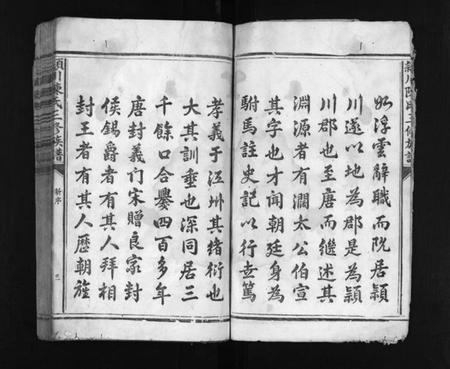 如浮雲辭職而阮居潁
川遂以地為郡是為潁
川郡也至唐而繼述其
淵源者有濶太公伯宣
其字也才聞朝廷身為
駙馬註史記以行世篤
孝義于江州其緒衍也
大其訓垂也深同居三
千餘口合爨四百多年
唐封義门宋贈良家封
侯錫爵者有其人拜相
封王者有其人歷朝旌
潁川陳氏三修族譜
新序